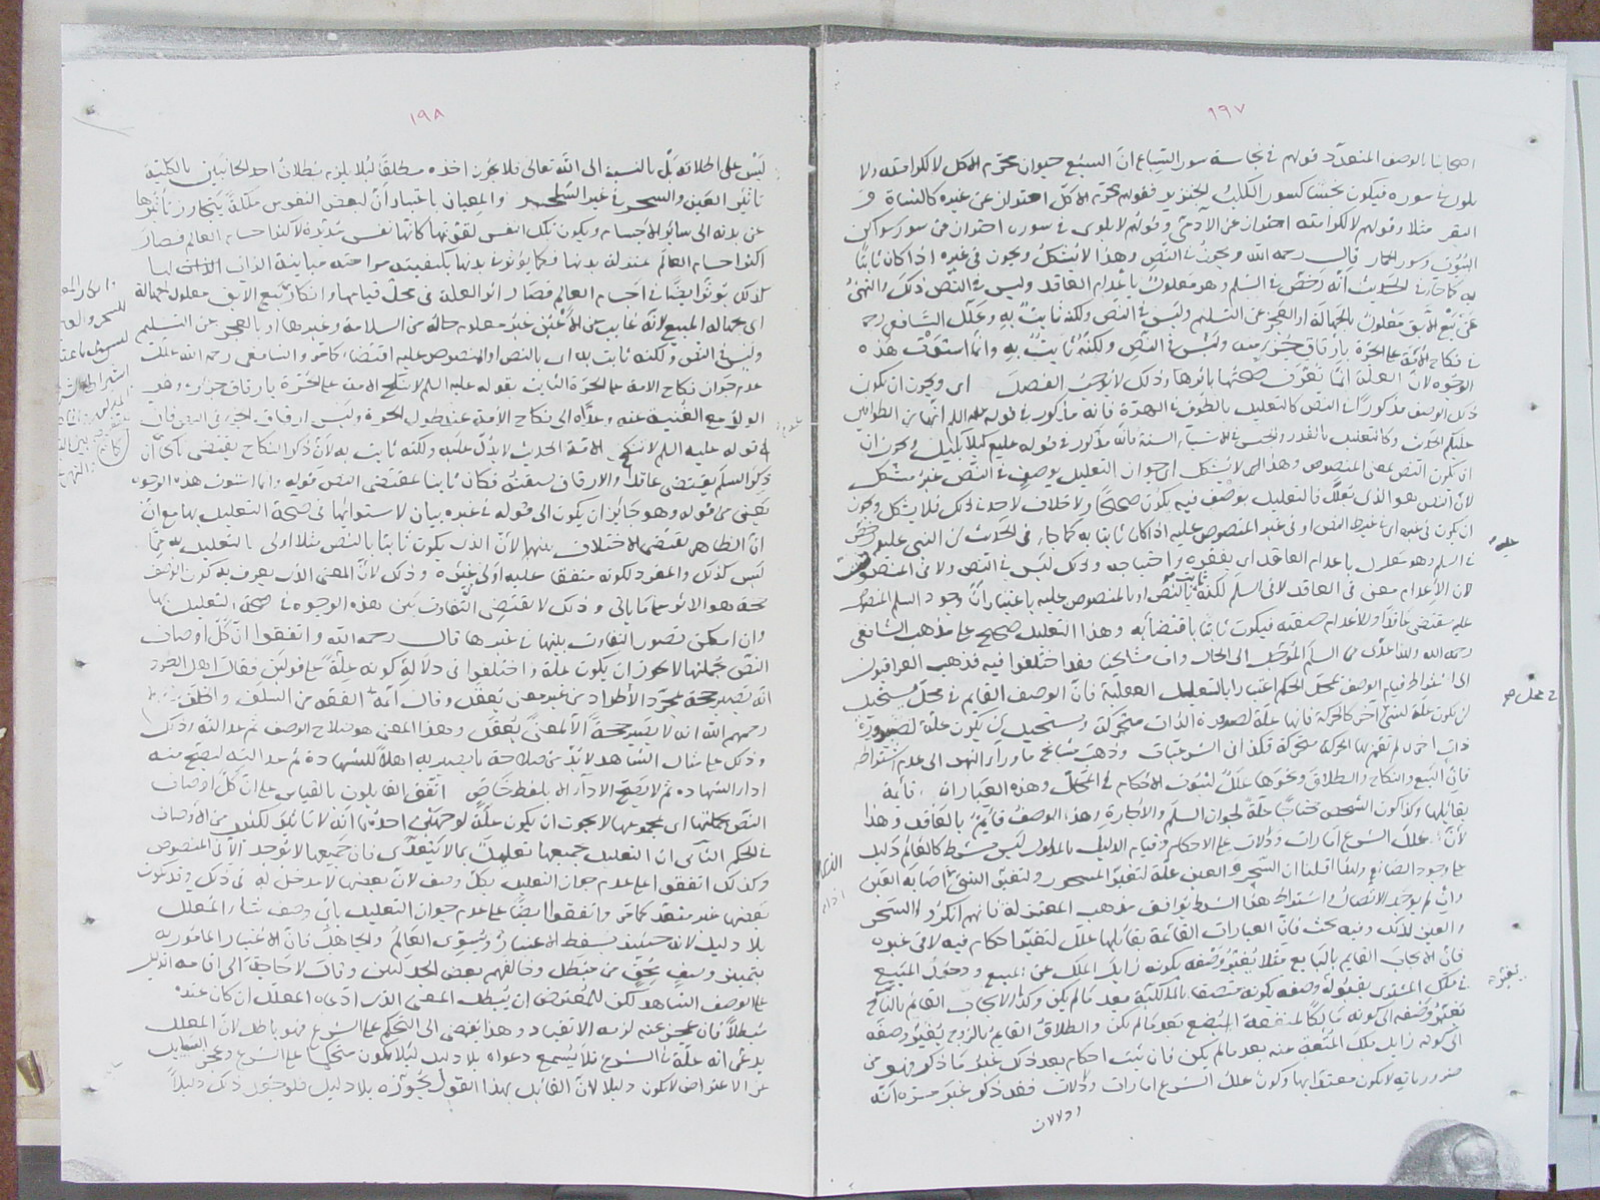 ١٩٧
اصحابنا بالوصف المتعدد قولهم في نجاسة سور السباع ان السبع حيوان محرم الاكل لا لكرامته ولا
بلوى في سوره فيكون نجسا كسور الكلب والخنزير فقولهم محرم الاكل احتراز عن غيره كالشاة و
البقر مثلا وقولهم لا لكرامته احتراز عن الآدمي وقولهم لا بلوى في سوره احتراز عن سور سواكن
البيوت وسور الحمار قال رحمه الله ويجوز في النص وهذا لا يشكل ويجوز في غيره اذا كان ثابتا
به كما جاء في الحديث انه رخص في السلم وهو معلول باعدام العاقد وليس في النص ذلك والنهي
عن بيع الآبق معلول بالجهالة او العجز عن التسليم وليس في النص ولكنه ثابت به وعلل الشافعي رحمه
في نكاح الامة على الحرة بارقاق جزء منه وليس في النص ولكنه ثابت به وانما استوت هذه
الوجوه لان العلة انما تعرف صحتها باثرها وذلك لا يوجب الفصل اي ويجوز ان يكون
ذلك الوصف مذكورا في النص كالتعليل بالطوف في الهرة فانه مذكور في قوله عليه السلام انها من الطوافين
عليكم الحديث وكالتعليل بالقدر والجنس في الاشياء الستة فانه مذكور في قوله عليه السلام كيلا بكيل ويجوز ان
ان يكون النص بمعنى المنصوص وهذا لا يشكل اي جواز التعليل بوصف في النص غير مشكل
لان النص هو الذي يعلل فالتعليل بوصف فيه يكون صحيحا ولا خلاف لاحد في ذلك فلا يشكل ويجوز
ان يكون في غيره اي في غير النص او في غير المنصوص عليه اذا كان ثابتا به كما جاء في الحديث ان النبي عليه السلام رخص
في السلم وهو معلول باعدام العاقد اي بفقره واحتياجه وذلك ليس في النص ولا في المنصوص
لان الاعدام معنى في العاقد لا في السلم لكنه ثابت بالنص او بالمنصوص عليه باعتبار ان وجود السلم المنصوص
عليه يقتضي عاقدا والاعدام صفته فيكون ثابتا باقتضائه وهذا التعليل صحيح على مذهب الشافعي
رحمه الله ولهذا عدى من السلم المؤجل الى الحال واما مشايخنا فقد اختلفوا فيه فذهب العراقيون
الى اشتراط قيام الوصف بمحل الحكم اعتبارا بالتعليل العقلية فان الوصف القايم في محل يستحيل
ان يكون علة لشيء آخر كالحركة فانها علة لصيرورة الذات متحركة ويستحيل ان يكون علة لصيرورة
ذات اخرى لم تقم بها الحركة متحركة فكذا في الشرعيات وذهب مشايخ ما وراء النهر الى عدم اشتراطه
فان البيع والنكاح والطلاق ونحوها علل لثبوت الاحكام في المحال وهذه العبارات قايمة
بقائلها وكذا كون الشخص محتاجا علة لجواز السلم والاجارة وهذا الوصف قايم بالعاقد وهذا
لان علل الشرع امارات ودلالات على الاحكام وقيام الدليل بالمدلول ليس بشرط كالعالم دليل
على وجود الصانع ولهذا قلنا ان السحر والعين علة لتغير المسحور ولتغير الشيء اصابة العين
وان لم يوجد الاتصال واشتراط هذا الشرط يوافق مذهب المعتزلة فانهم انكروا السحر
والعين لذلك وفيه بحث فان العبارات القائمة بقائلها علل لتغير احكام فيه لا في غيره
فان الايجاب القايم بالبايع مثلا يغير وصفه بكونه زايل الملك عن المبيع ودخول المبيع
في ملك المشتري بقبوله وصفه بكونه متصفا بالمالكية بعد ما لم يكن وكذا الايجاب القايم بالناكح
يغير وصفه الى كونه مالكا لمنفعة البضع بعد ما لم يكن والطلاق القايم بالزوج يغير وصفه
الى كونه زايل ملك المتعة عنه بعد ما لم يكن فان ثبت احكام بعد ذلك غير ما ذكر فهو من
ضرورياته لا يكون معتدا بها وكون علل الشرع امارات ودلالات فقد ذكر غير مرة انه
ودلالات
١٩٨
ليس على اطلاقه بل بالنسبة الى الله تعالى فلا يجوز اخذه مطلقا لئلا يلزم بطلان احد الجانبين بالكلية
تاثير العين والسحر في غير السطحية والعيان باعتبار ان لبعض النفوس ملكة يتجاوز تاثيرها
عن بدنه الى سائر الاجسام ويكون تلك النفس لقوتها كانها نفس مدبرة لاكثر اجسام العالم فصار
اكثر اجسام العالم بمنزلة بدنها فكما يؤثر في بدنها بكيفية مزاجية مباينة الذات لها
كذلك يؤثر ايضا في اجسام العالم فصار اثر العلة في محل قيامها وانكار بيع الآبق معلول بجهالة
اي بجهالة المبيع لانه غايب عن الاعين غير معلوم حاله من السلامة وغيرها او بالعجز عن التسليم
وليس في النص ولكنه ثابت به اي بالنص او المنصوص عليه اقتضاء كما مر والشافعي رحمه الله علل
عدم جواز نكاح الامة على الحرة الثابت بقوله عليه السلام لا تنكح الامة على الحرة بارقاق جزء منه وهو
الولد مع الغنية عنه وعداه الى نكاح الامة عند طول الحرة وليس ارقاق الجزء في النص فان
قوله عليه السلام لا تنكح الامة الحديث لا يدل عليه ولكنه ثابت به لان ذكر النكاح يقتضي ناكحا كما ان
ذكر السلم يقتضي عاقدا والارقاق صفته فكان ثابتا بمقتضى النص قوله وانما استوت هذه الوجوه
يعني من قوله وهو جائز ان يكون الى قوله في غيره بيان لاستوائها في صحة التعليل بها مع ان
ان الظاهر يقتضي الاختلاف بينها لان الذي يكون ثابتا بالنص مثلا اولى بالتعليل به مما
ليس كذلك والمفرد لكونه متفقا عليه اولى غيره وذلك لان المعنى الذي يعرف به كون الوصف
حجة هو الاثر على ما ياتي وذلك لا يقتضي التفاوت بين هذه الوجوه في صحة التعليل بها
وان امكن تصور التفاوت بينها في غيرها قال رحمه الله واتفقوا ان كل اوصاف
النص بجملتها لا يجوز ان يكون علة واختلفوا في دلالة كونه علة على قولين فقال اهل الطرد
انه يصير حجة بمجرد الاطراد من غير معنى يعقل وقال ائمة الفقه من السلف والخلف
رحمهم الله انه لا يصير حجة الا لمعنى يعقل وهذا المعنى هو صلاح الوصف ثم عدالته وذلك
وذلك على مثال الشاهد لا بد من صلاحه بما يصير به اهلا للشهادة ثم عدالته ليصح منه
اداء الشهادة ثم لا يصح الاداء الا بلفظ خاص اتفق القايلون بالقياس على ان كل اوصاف
النص بجملتها اي بمجموعها لا يجوز ان يكون علة لوجهين احدهما انه لا تاثير لكثير من الاوصاف
في الحكم الثاني ان التعليل بجميعها تعليل بما لا يتعدى فان جميعها لا توجد الا في المنصوص
وكذلك اتفقوا على عدم جواز التعليل بكل وصف لان بعضها لا مدخل له في ذلك وقد يكون
بعضها غير متعد كما مر واتفقوا ايضا على عدم جواز التعليل باي وصف شاء المعلل
بلا دليل لانه حينئذ يسقط الاعتبار ويستوي العالم والجاهل فان الاعتبار المامور به
بتمييز وصف محق من مبطل وخالفهم بعض الجدليين وقال لا حاجة الى اقامة الدليل
على الوصف الشاهد لكن للمعترض ان يبطل المعنى الذي ادعاه المعلل ان كان عنده
مبطلا فان عجز عنه لزمه الانقياد وهذا يفضي الى التحكم على الشرع فهو باطل لان المعلل
يدعي انه علة في الشرع فلا يسمع دعواه بلا دليل لئلا يكون متحكما على الشرع وعجز السايل
عن الاعتراض لا يكون دليلا لان القايل بهذا القول يجوزه بلا دليل فلو جعل ذلك دليلا